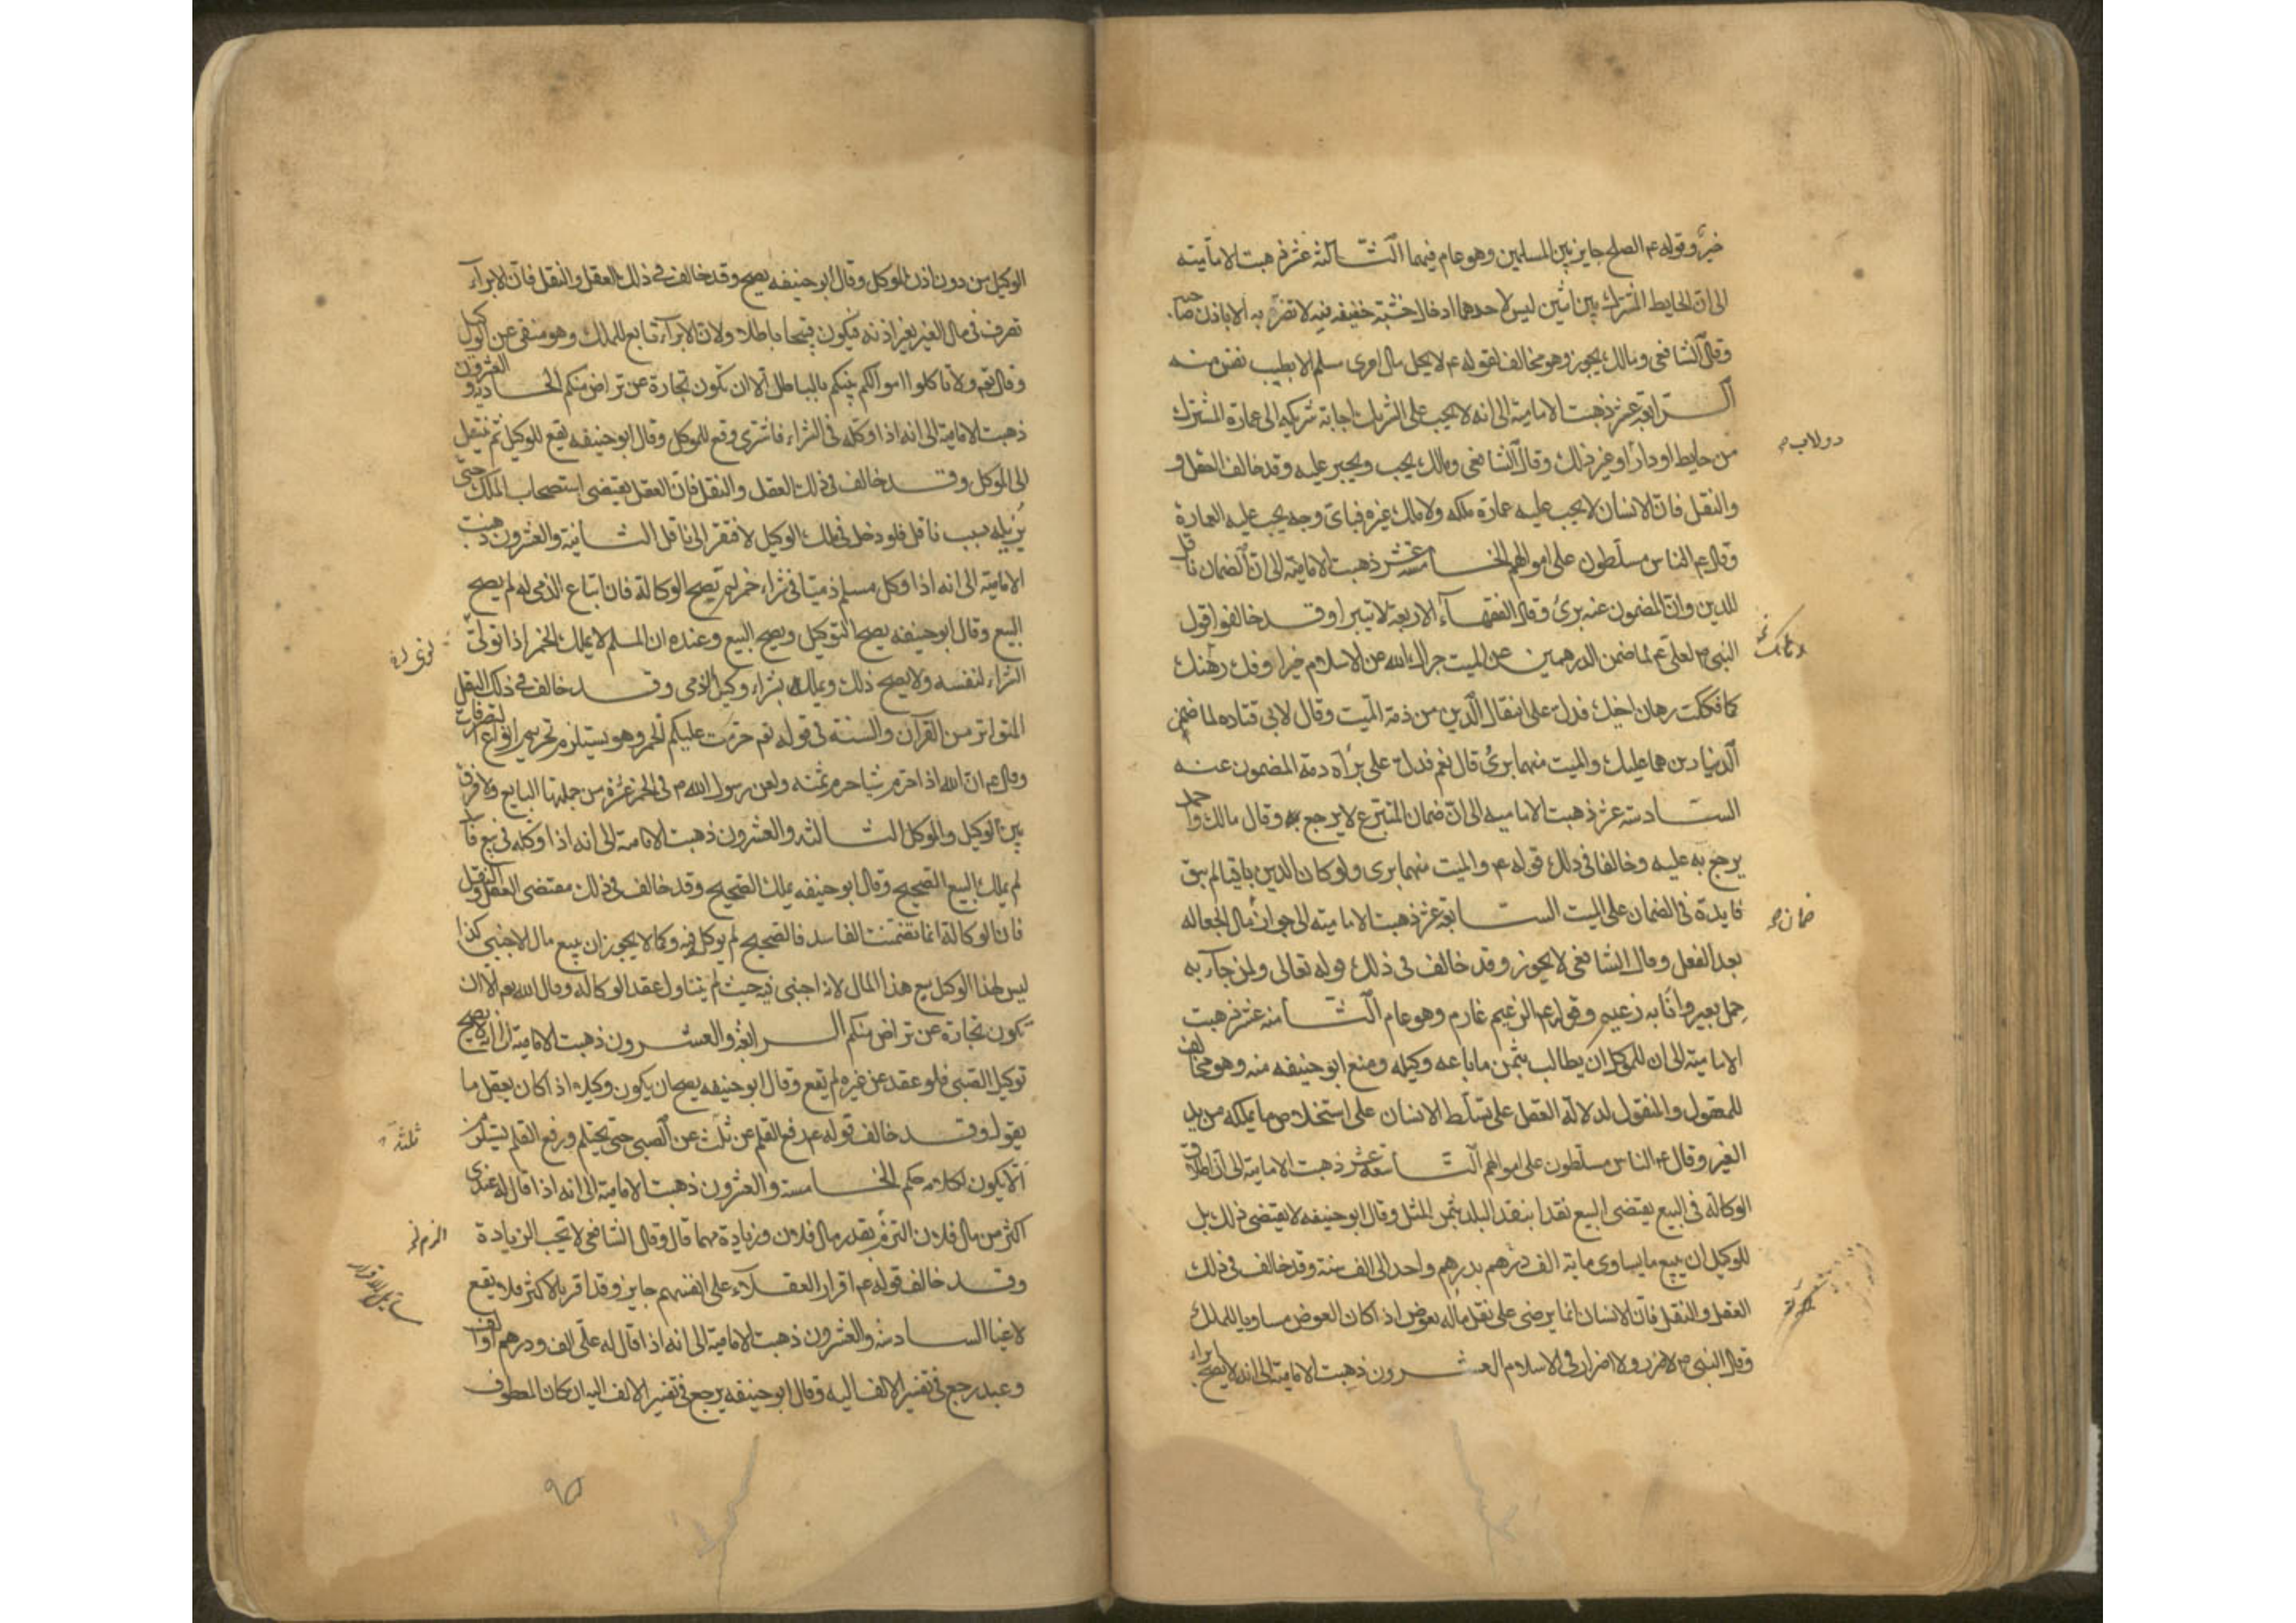 خير وقوله ع م الصلح جايز بين المسلمين وهو عام فيهما الثالثة عشر ذهبت الامامية
الى ان الحايط المشترك بين اثنين ليس لاحدهما ادخال خشبة خفيفه فيه لا تضر به الا باذن صاحبه
وقال الشافعى ومالك يجوز وهو مخالف لقوله ع م لا يحل مال امرى مسلم الا بطيب نفس منه
الرابعة عشر ذهبت الامامية الى انه لا يجب على الشريك اجابة شريكه الى عمارة المشترك
من حايط او دار او غير ذلك وقال الشافعى ومالك يجب ويجبر عليه وقد خالف العقل و
والنقل فان الانسان لا يجب عليه عمارة ملكه ولا ملك غيره فباى وجه يجب عليه العمارة
وقال ع م الناس مسلطون على اموالهم الخامسة عشر ذهبت الامامية الى ان الضمان ناقل
للدين وان المضمون عنه برئ وقال الفقهآء الاربعة لا تبرا وقد خالفوا قول
النبى ص لعلى ع م لما ضمن الدرهمين عن الميت جزاك الله عن الاسلام خيرا وفك رهنك
كما فككت رهان اخيك فدل على انتقال الدين من ذمة الميت وقال لابى قتاده لما ضمن
الدينارين هما عليك والميت منهما برئ قال نعم فدل على برآه ذمة المضمون عنه
السادسة عشر ذهبت الاماميه الى ان ضمان المتبرع لا يرجع به وقال مالك واحمد
يرجع به عليه وخالفا فى ذلك قوله ع م والميت منهما برى ولو كان الدين باقيا لم يبق
فايدة فى الضمان على الميت السابعة عشر ذهبت الامامية الى جواز مال الجعاله
بعد الفعل وقال الشافعى لا يجوز وقد خالف فى ذلك قوله تعالى ولمن جآء به
حمل بعير وانا به زعيم وقوله ع م الزعيم غارم وهو عام الثامنة عشر ذهبت
الامامية الى ان للموكل ان يطالب بثمن ما باعه وكيله ومنع ابو حنيفه منه وهو مخالف
للمعقول والمنقول لدلالة العقل على تسلط الانسان على استخلاص ما يملكه من يد
الغير وقال ع م الناس مسلطون على اموالهم التاسعة عشر ذهبت الامامية الى ان اطلاق
الوكالة فى البيع يقتضى البيع نقدا بنقد البلد بثمن المثل وقال ابو حنيفه لا يقتضى ذلك بل
للوكيل ان يبيع ما يساوى ماية الف درهم بدرهم واحد الى الف سنة وقد خالف فى ذلك
العقل والنقل فان الانسان انما يرضى على نقل ماله بعوض اذا كان العوض مساويا للملك
وقال النبى ص لا ضرر ولا اضرار فى الاسلام العشرون ذهبت الامامية الى انه لا يصح ابراء
دولاب
ضمان
الوكيل من دون اذن الموكل وقال ابو حنيفه يصح وقد خالف فى ذلك العقل والنقل فان الابرآء
تصرف فى مال الغير بغير اذنه فيكون قبيحا باطلا ولان الابرآء تابع للملك وهو منفى عن الوكيل
وقال تعم ولا تاكلوا اموالكم بينكم بالباطل الا ان تكون تجارة عن تراض منكم الحادية والعشرون
ذهبت الامامية الى انه اذا وكله فى الشراء فاشترى وقع للموكل وقال ابو حنيفه يقع للوكيل ثم ينتقل
الى الموكل وقد خالف فى ذلك العقل والنقل فان العقل يقتضى استصحاب الملك حتى
يزيله سبب ناقل فلو دخل فى ملك الوكيل لافتقر الى ناقل الثانية والعشرون ذهبت
الامامية الى انه اذا وكل مسلم ذميا فى شراء خمر لم تصح الوكالة فان ابتاع الذمى له لم يصح
البيع وقال ابو حنيفه يصح التوكيل ويصح البيع وعنده ان المسلم لا يملك الخمر اذا تولى
الشراء لنفسه ولا يصح ذلك ويملك بشراء وكيل الذمى وقد خالف فى ذلك النقل
المتواتر من القرآن والسنة فى قوله تعم حرمت عليكم الخمر وهو يستلزم تحريم انواع التصرفات
وقال ع م ان الله اذا حرم شيا حرم ثمنه ولعن رسول الله ص فى الخمر عشرة من جملتها البايع ولا فرق
بين الوكيل والموكل الثالثة والعشرون ذهبت الامامية الى انه اذا وكله فى بيع فاسد
لم يملك البيع الصحيح وقال ابو حنيفه يملك الصحيح وقد خالف فى ذلك مقتضى العقل والنقل
فان الوكالة انما تضمنت الفاسد فالصحيح لم يوكل فيه وكما لا يجوز ان يبيع مال الاجنبى كذا
ليس لهذا الوكيل بيع هذا المال لانه اجنبى فيه حيث لم يتناول عقد الوكالة وقال الله تعم الا ان
تكون تجارة عن تراض منكم الرابعة والعشرون ذهبت الامامية الى انه لا يصح
توكيل الصبى فلو عقد عن غيره لم يقع وقال ابو حنيفه يصح ان يكون وكيلا اذا كان يعقل ما
يقول وقد خالف قوله ع م رفع القلم عن ثلث عن الصبى حتى يحتلم ورفع القلم يستلزم
الا يكون لكلامه حكم الخامسة والعشرون ذهبت الامامية الى انه اذا قال له عندى
اكثر من مال فلان التزم بقدر مال فلان وزيادة مهما قال وقال الشافعى لا تجب الزيادة
وقد خالف قوله ع م اقرار العقلآء على انفسهم جايز وقد اقر بالاكثر فلا يقع
لاغيا السادسة والعشرون ذهبت الامامية الى انه اذا قال له على الف ودرهم او الف
وعبد رجع فى تفسير الالف اليه وقال ابو حنيفه يرجع فى تفسير الالف اليه ان كان المعطوف
ثلثة
الزم